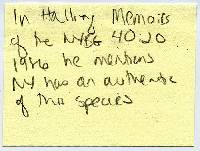 In Halling Memoirs
of the NYBG 40:20
1986 he mentions
NY has an authentic
of this species